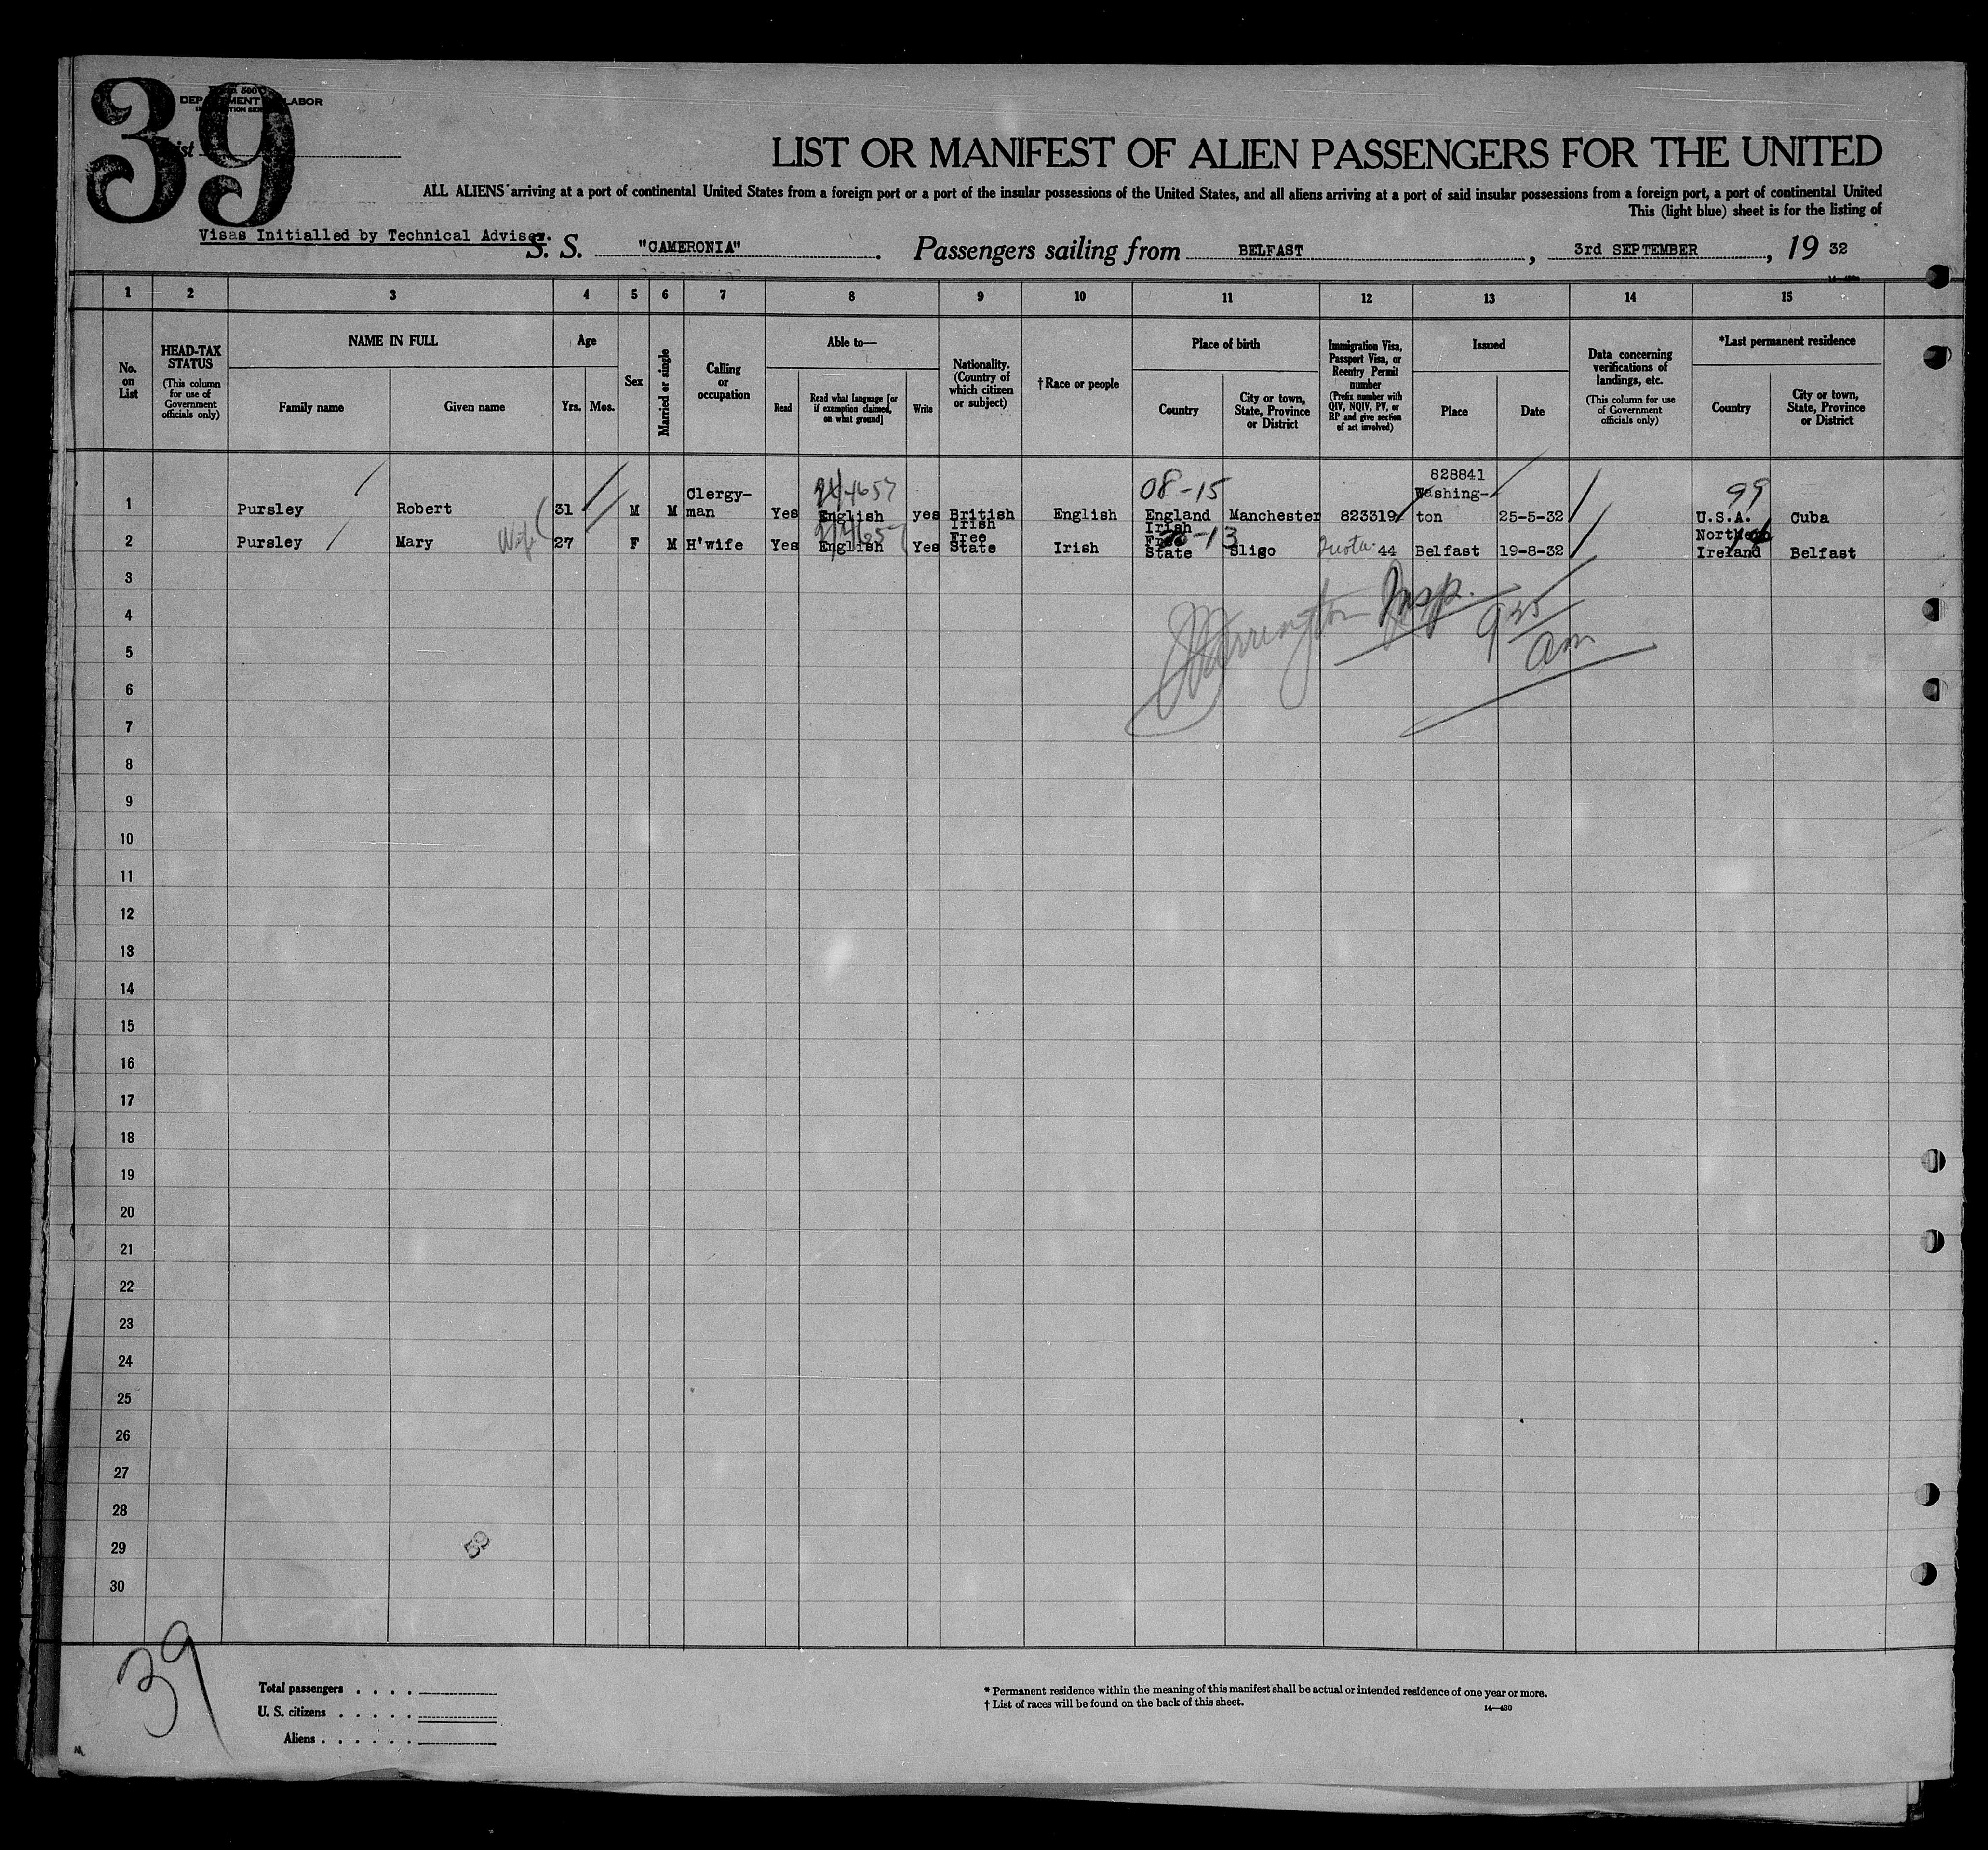 39
Form 500
DEPARTMENT OF LABOR
List
LIST OR MANIFEST OF ALIEN PASSENGERS FOR THE UNITED
ALL ALIENS arriving at a port of continental United States from a foreign port or a port of the insular possessions of the United States, and all aliens arriving at a port of said insular possessions from a foreign port, a port of continental United
This (light blue) sheet is for the listing of
Visas Initialled by Technical Adviser.
S. S. "CAMERONIA". Passengers sailing from BELFAST, 3rd SEPTEMBER, 19 32
1 2 3 4 5 6 7 8 9 10 11 12 13 14 15
No. on List
HEAD-TAX STATUS
(This column for use of Government officials only)
NAME IN FULL
Family name
Given name
Age
Yrs.
Mos.
Sex
Married or single
Calling or occupation
Able to—
Read
Read what language [or if exemption claimed, on what ground]
Write
Nationality. (Country of which citizen or subject)
†Race or people
Place of birth
Country
City or town, State, Province or District
Immigration Visa, Passport Visa, or Reentry Permit number
(Prefix number with QIV, NQIV, PV, or RP and give section of act involved)
Issued
Place
Date
Data concerning verifications of landings, etc.
(This column for use of Government officials only)
*Last permanent residence
Country
City or town, State, Province or District
1 Pursley Robert 31 M M Clergy-man Yes English yes British English 08-15 England Manchester 823319 828841 Washing-ton 25-5-32 99 U.S.A. Cuba
2 Pursley Mary Wife 27 F M H'wife Yes English Yes Irish Free State Irish Irish Free State Sligo Quota 44 Belfast 19-8-32 Northern Ireland Belfast
3
4
Insp. 9 25 am
5
6
7
8
9
10
11
12
13
14
15
16
17
18
19
20
21
22
23
24
25
26
27
28
29
30
39
Total passengers . . . .
U. S. citizens . . . . .
Aliens . . . . . .
* Permanent residence within the meaning of this manifest shall be actual or intended residence of one year or more.
† List of races will be found on the back of this sheet.
14—430